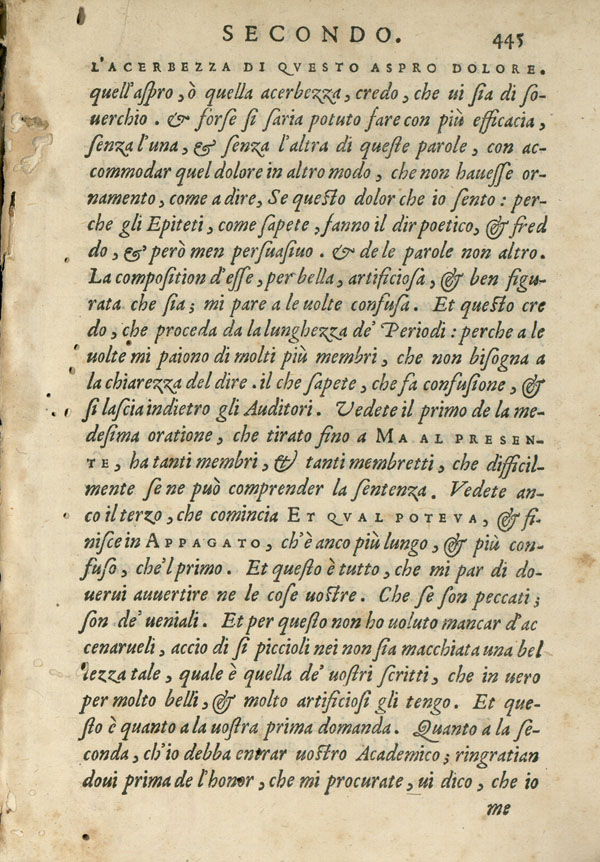 SECONDO. 445
L'ACERBEZZA DI QVESTO ASPRO DOLORE.
quell'aſpro, ò quella acerbezza, credo, che ui ſia di ſo-
uerchio. & forſe ſi ſaria potuto fare con più efficacia,
ſenza l'una, & ſenza l'altra di queſte parole, con ac-
commodar quel dolore in altro modo, che non haueſſe or-
namento, come a dire, Se queſto dolor che io ſento: per-
che gli Epiteti, come ſapete, fanno il dir poetico, & fred
do, & però men perſuaſiuo. & de le parole non altro.
La compoſition d'eſſe, per bella, artificioſa, & ben figu-
rata che ſia; mi pare a le uolte confuſa. Et queſto cre
do, che proceda da la lunghezza de' Periodi: perche a le
uolte mi paiono di molti più membri, che non biſogna a
la chiarezza del dire. il che ſapete, che fa confuſione, &
ſi laſcia indietro gli Auditori. Vedete il primo de la me-
deſima oratione, che tirato fino a MA AL PRESEN-
TE, ha tanti membri, & tanti membretti, che difficil-
mente ſe ne può comprender la ſentenza. Vedete an-
co il terzo, che comincia ET QVAL POTEVA, & fi-
niſce in APPAGATO, ch'è anco più lungo, & più con-
fuſo, che'l primo. Et queſto è tutto, che mi par di do-
uerui auuertire ne le coſe uoſtre. Che ſe ſon peccati;
ſon de' ueniali. Et per queſto non ho uoluto mancar d'ac
cenarueli, accio di ſi piccioli nei non ſia macchiata una bel
lezza tale, quale è quella de' uoſtri ſcritti, che in uero
per molto belli, & molto artificioſi gli tengo. Et que-
ſto è quanto a la uoſtra prima domanda. Quanto a la ſe-
conda, ch'io debba entrar uoſtro Academico; ringratian
doui prima de l'honor, che mi procurate, ui dico, che io
me